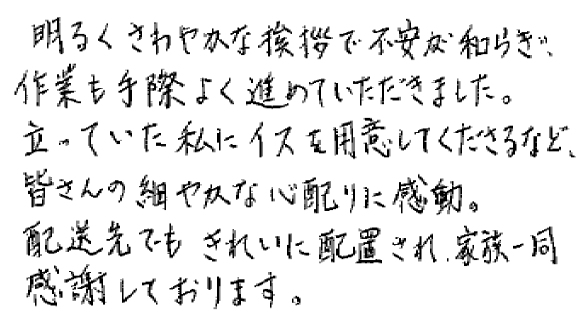 明るくさわやかな挨拶で不安が和らぎ、
作業も手際よく進めていただきました。
立っていた私にイスを用意してくださるなど、
皆さんの細やかな心配りに感動。
配送先でもきれいに配置され、家族一同
感謝しております。